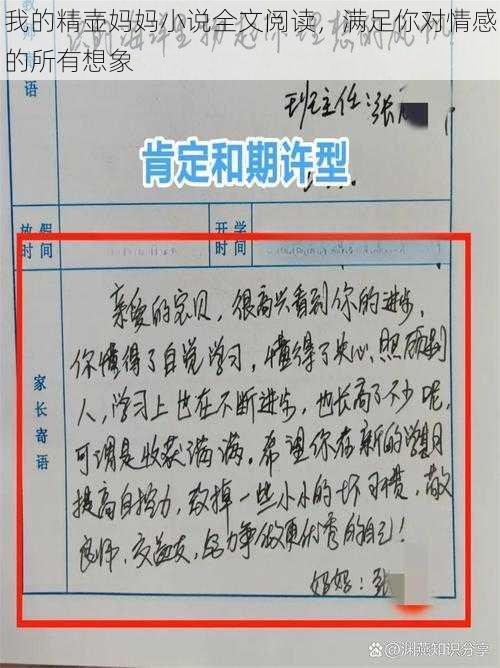 我的精壶妈妈小说全文阅读，满足你对情感
的所有想象
寄语
班主任：张
肯定和期许型
放假时间
开学时间
家长寄语
亲爱的宝贝，很高兴看到你的进步，
你懂得了自觉学习，懂得了关心、照顾别
人，学习上也在不断进步，也长高了不少呢，
可谓是收获满满。希望你在新的学期
提高自控力，改掉一些小小的坏习惯，敬
良师、交益友，努力争做更优秀的自己！
妈妈：张
@渊燕知识分享